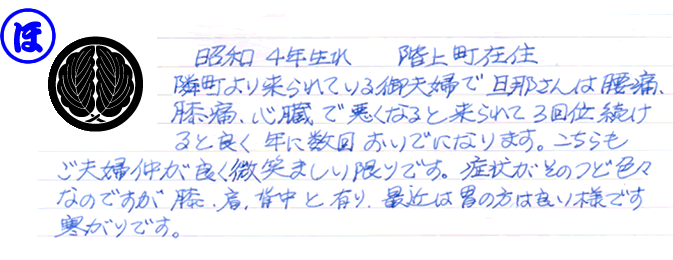 ほ
昭和4年生れ 階上町在住
隣町より来られている御夫婦で旦那さんは腰痛、
膝痛、心臓で悪くなると来られて3回位続け
ると良く年に数回おいでになります。こちらも
ご夫婦仲が良く微笑ましい限りです。症状がそのつど色々
なのですが膝、肩、背中と有り、最近は胃の方は良い様です
寒がりです。